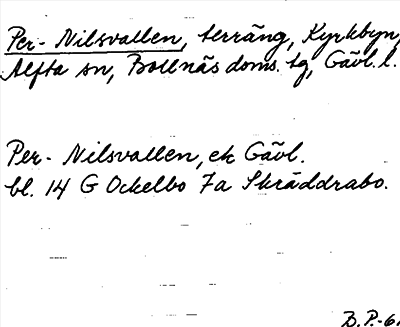 Per- Nilsvallen, terräng, Kyrkbyn,
Alfta sn, Bollnäs doms. tg, Gävl. l.
Per- Nilsvallen, ek Gävl.
bl. 14 G Ockelbo 7a Skräddrabo.
B.P.-6.